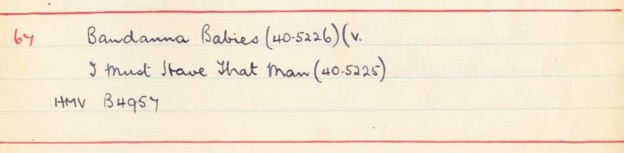 67 Bandanna Babies (40-5226) (v.
I Must Have That Man (40-5225)
HMV B4957